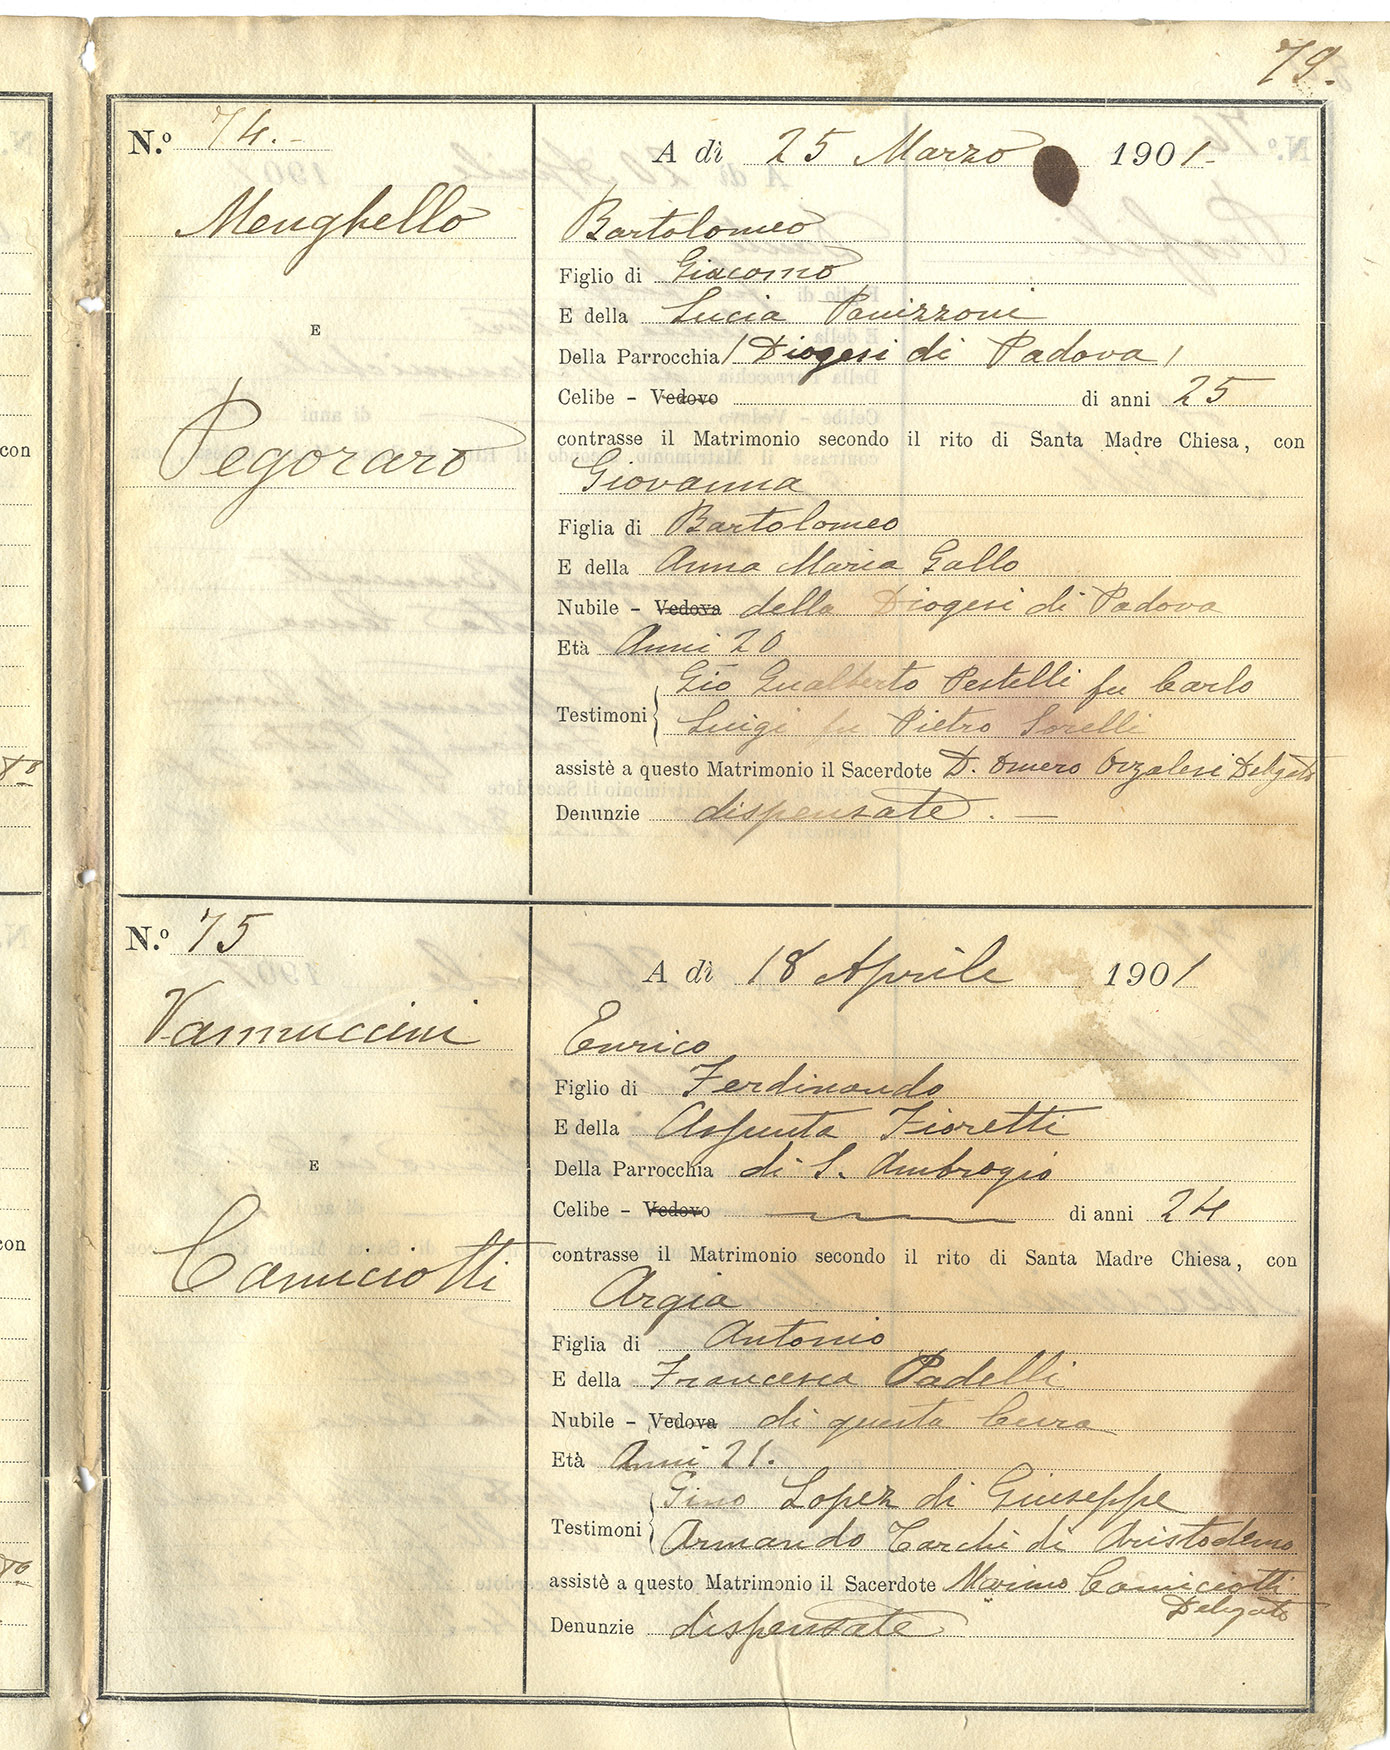 79.
N.º 74.-
Menghello
E
Pegoraro
A dì 25 Marzo 1901.
Bartolomeo
Figlio di Giacomo
E della Lucia Panizzoni
Della Parrocchia / Diogesi di Padova /
Celibe - Vedovo di anni 25
contrasse il Matrimonio secondo il rito di Santa Madre Chiesa, con
Giovanna
Figlia di Bartolomeo
E della Anna Maria Gallo
Nubile - Vedova della Diogesi di Padova
Età Anni 20
Gio Gualberto Pestelli fu Carlo
Testimoni
Luigi fu Pietro Sorelli
assistè a questo Matrimonio il Sacerdote D. Omero Orzalesi Delegato
Denunzie dispensate. —
N.º 75
Vannuccini
E
Camiciotti
A dì 18 Aprile 1901
Enrico
Figlio di Ferdinando
E della Assunta Fioretti
Della Parrocchia di S. Ambrogio
Celibe - Vedovo di anni 24
contrasse il Matrimonio secondo il rito di Santa Madre Chiesa, con
Argia
Figlia di Antonio
E della Francesca Padelli
Nubile - Vedova di questa Cura
Età Anni 21.
Gino Lopez di Giuseppe
Testimoni
Armando Tarchi di Aristodemo
assistè a questo Matrimonio il Sacerdote Marino Camiciotti
Delegato
Denunzie dispensate
con
con